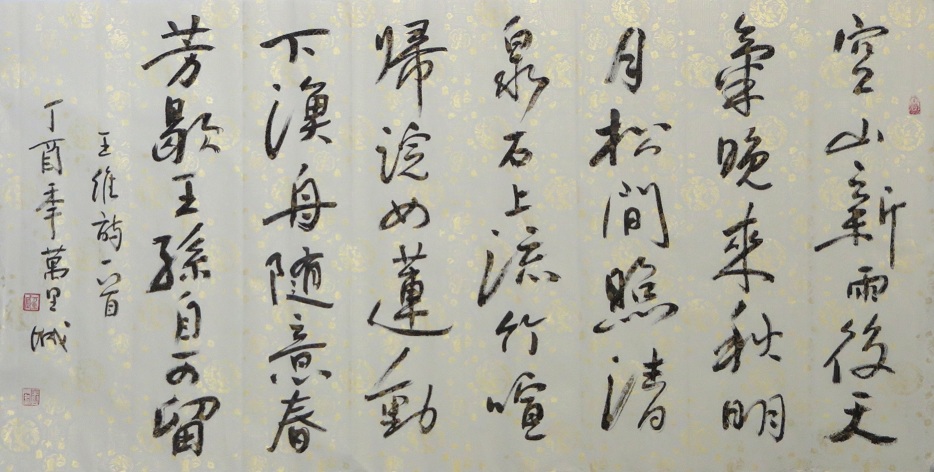 空山新雨後天
氣晚來秋明
月松間照清
泉石上流竹喧
歸浣女蓮動
下漁舟隨意春
芳歇王孫自可留
王維詩一首
丁酉年萬里城